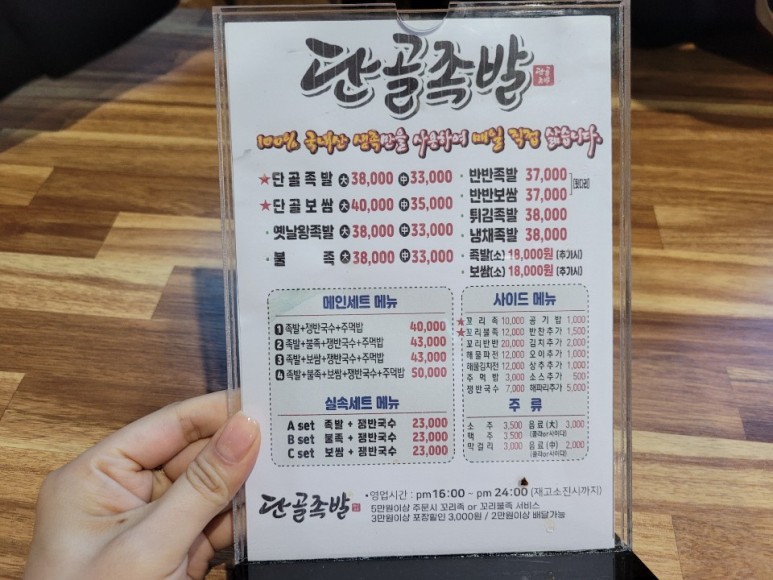 단골족발
단골족발
100% 국내산 생족만을 사용하여 매일 직접 삶습니다.
★단골족발 大 38,000 中 33,000
★단골보쌈 大 40,000 中 35,000
· 옛날왕족발 大 38,000 中 33,000
· 불족 大 38,000 中 33,000
· 반반족발 37,000
· 반반보쌈 37,000
[뒷다리]
· 튀김족발 38,000
· 냉채족발 38,000
· 족발(소) 18,000원 (추가시)
· 보쌈(소) 18,000원 (추가시)
메인세트 메뉴
1 족발+쟁반국수+주먹밥 40,000
2 족발+불족+쟁반국수+주먹밥 43,000
3 족발+보쌈+쟁반국수+주먹밥 43,000
4 족발+불족+보쌈+쟁반국수+주먹밥 50,000
실속세트 메뉴
A set 족발 + 쟁반국수 23,000
B set 불족 + 쟁반국수 23,000
C set 보쌈 + 쟁반국수 23,000
사이드 메뉴
★꼬리족 10,000 공기밥 1,000
★꼬리불족 12,000 반찬추가 1,500
꼬리반반 20,000 김치추가 2,000
해물파전 12,000 오이추가 1,000
해물김치전 12,000 상추추가 1,000
주먹밥 3,000 소스추가 500
쟁반국수 7,000 해파리추가 5,000
주류
소주 3,500 음료(大) 3,000
맥주 3,500 (콜라or사이다)
막걸리 3,000 음료(中) 2,000
(콜라or사이다)
단골족발
• 영업시간 : pm 16:00 ~ pm 24:00 (재고소진시까지)
5만원이상 주문시 꼬리족 or 꼬리불족 서비스
3만원이상 포장할인 3,000원 / 2만원이상 배달가능